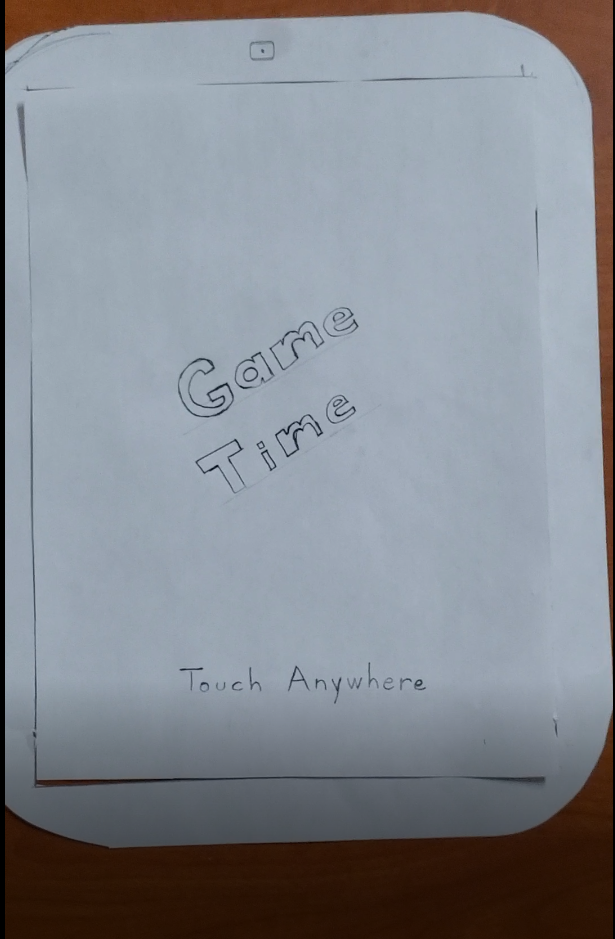 Game
Time
Touch Anywhere